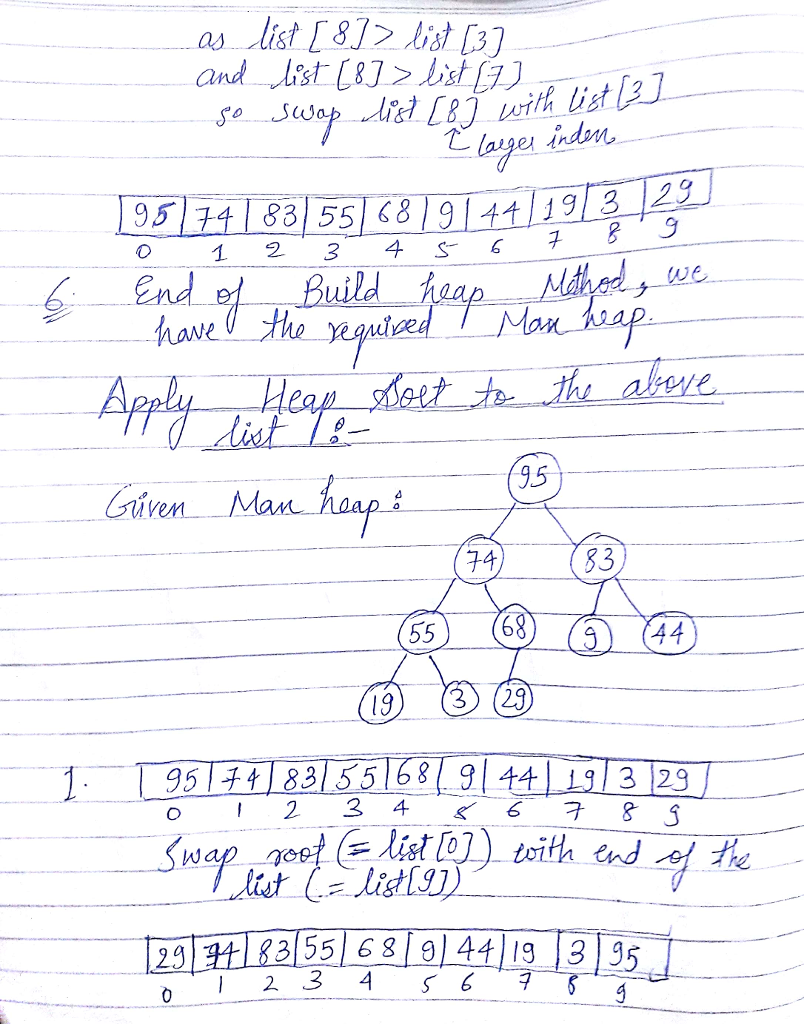 as list [8] > list [3]
and list [8] > list [7]
so swap list [8] with list [3]
↑ larger index
95 | 74 | 83 | 55 | 68 | 9 | 44 | 19 | 3 | 29
0 1 2 3 4 5 6 7 8 9
6. End of Build heap Method, we
have the required Max heap.
Apply Heap Sort to the above
list :-
Given Max heap :
95
74 83
55 68 9 44
19 3 29
1. 95 | 74 | 83 | 55 | 68 | 9 | 44 | 19 | 3 | 29
0 1 2 3 4 5 6 7 8 9
Swap root (= list [0]) with end of the
list (= list [9])
29 | 74 | 83 | 55 | 68 | 9 | 44 | 19 | 3 | 95
0 1 2 3 4 5 6 7 8 9